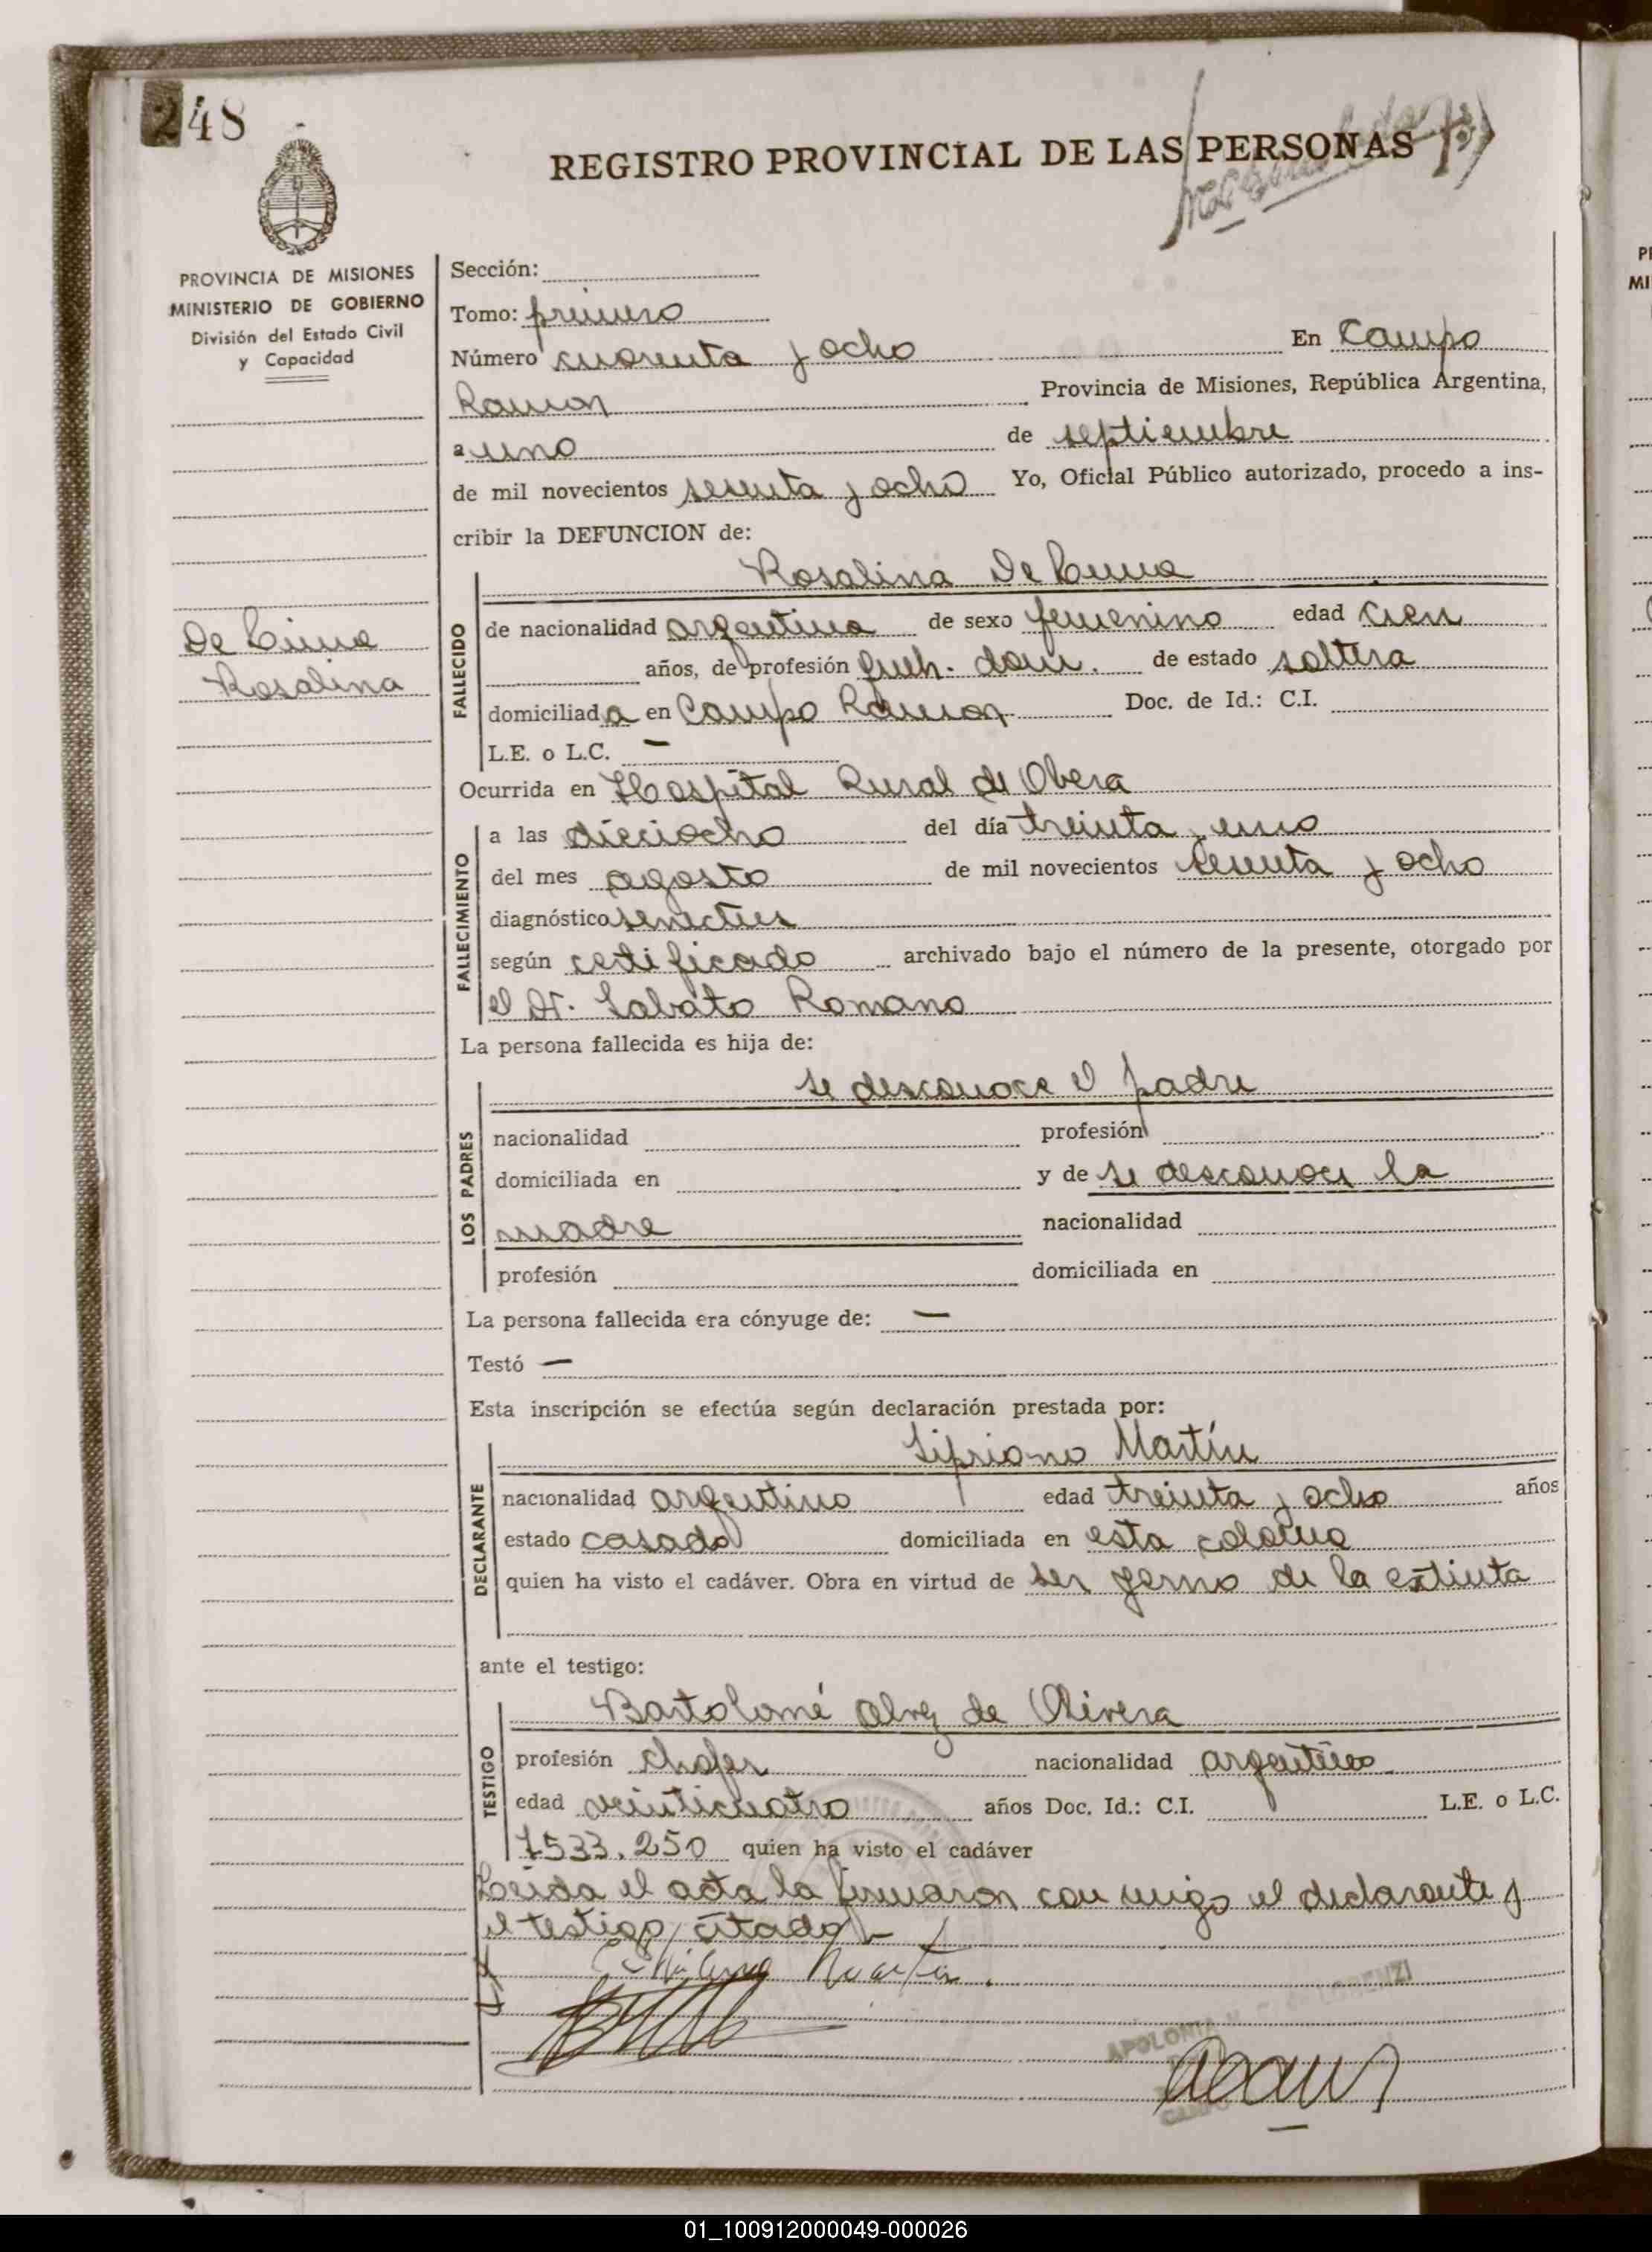 248
REGISTRO PROVINCIAL DE LAS PERSONAS
PROVINCIA DE MISIONES
MINISTERIO DE GOBIERNO
División del Estado Civil
y Capacidad
Sección:
Tomo: primero
Número cuarenta y ocho En Campo
Ramon Provincia de Misiones, República Argentina,
a uno de septiembre
de mil novecientos sesenta y ocho Yo, Oficial Público autorizado, procedo a ins-
cribir la DEFUNCION de:
Rosalina De Lima
De Lima
Rosalina
FALLECIDO
de nacionalidad argentina de sexo femenino edad cien
años, de profesión queh. dom. de estado soltera
domiciliada en Campo Ramon Doc. de Id.: C.I.
L.E. o L.C. —
Ocurrida en Hospital Rural de Obera
FALLECIMIENTO
a las dieciocho del día treinta y uno
del mes agosto de mil novecientos sesenta y ocho
diagnóstico senectus
según certificado archivado bajo el número de la presente, otorgado por
el Dr. Sabato Romano
La persona fallecida es hija de:
LOS PADRES
se desconoce el padre
nacionalidad profesión
domiciliada en y de se desconoce la
madre nacionalidad
profesión domiciliada en
La persona fallecida era cónyuge de: —
Testó —
Esta inscripción se efectúa según declaración prestada por:
DECLARANTE
Sipriano Martín
nacionalidad argentino edad treinta y ocho años
estado casado domiciliada en esta colonia
quien ha visto el cadáver. Obra en virtud de ser yerno de la extinta
ante el testigo:
TESTIGO
Bartolomé Alvez de Olivera
profesión chofer nacionalidad argentino
edad veinticuatro años Doc. Id.: C.I. L.E. o L.C.
7533.250 quien ha visto el cadáver
Leida el acta la firmaron con migo el declarante y
el testigo citado -
APOLONIA
01_100912000049-000026